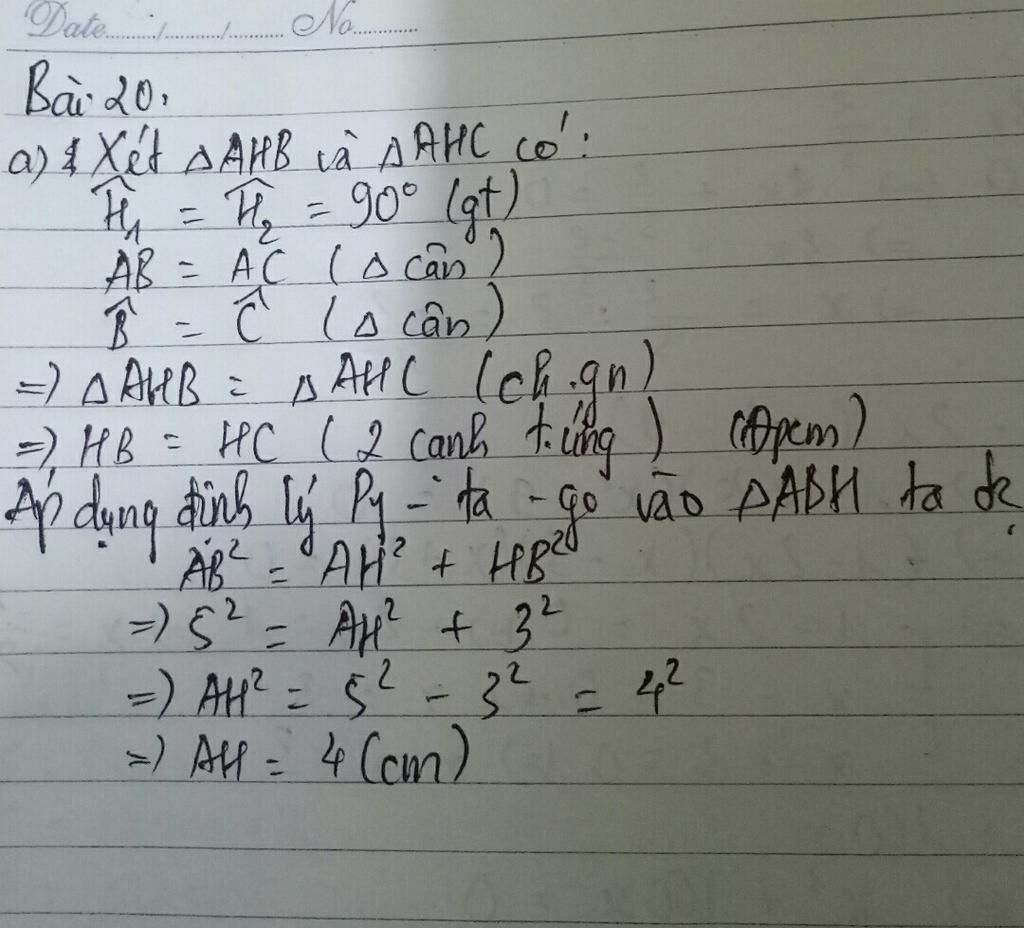 Date......../......../........ No...........
Bài 20.
a) Xét △AHB và △AHC có:
Ĥ₁ = Ĥ₂ = 90° (gt)
AB = AC (△ cân)
B̂ = Ĉ (△ cân)
=> △AHB = △AHC (ch.gn)
=> HB = HC (2 canh t.ứng) (Đpcm)
Áp dụng định lý Py - ta - go vào △ABH ta đc
AB² = AH² + HB²
=> 5² = AH² + 3²
=> AH² = 5² - 3² = 4²
=> AH = 4 (cm)